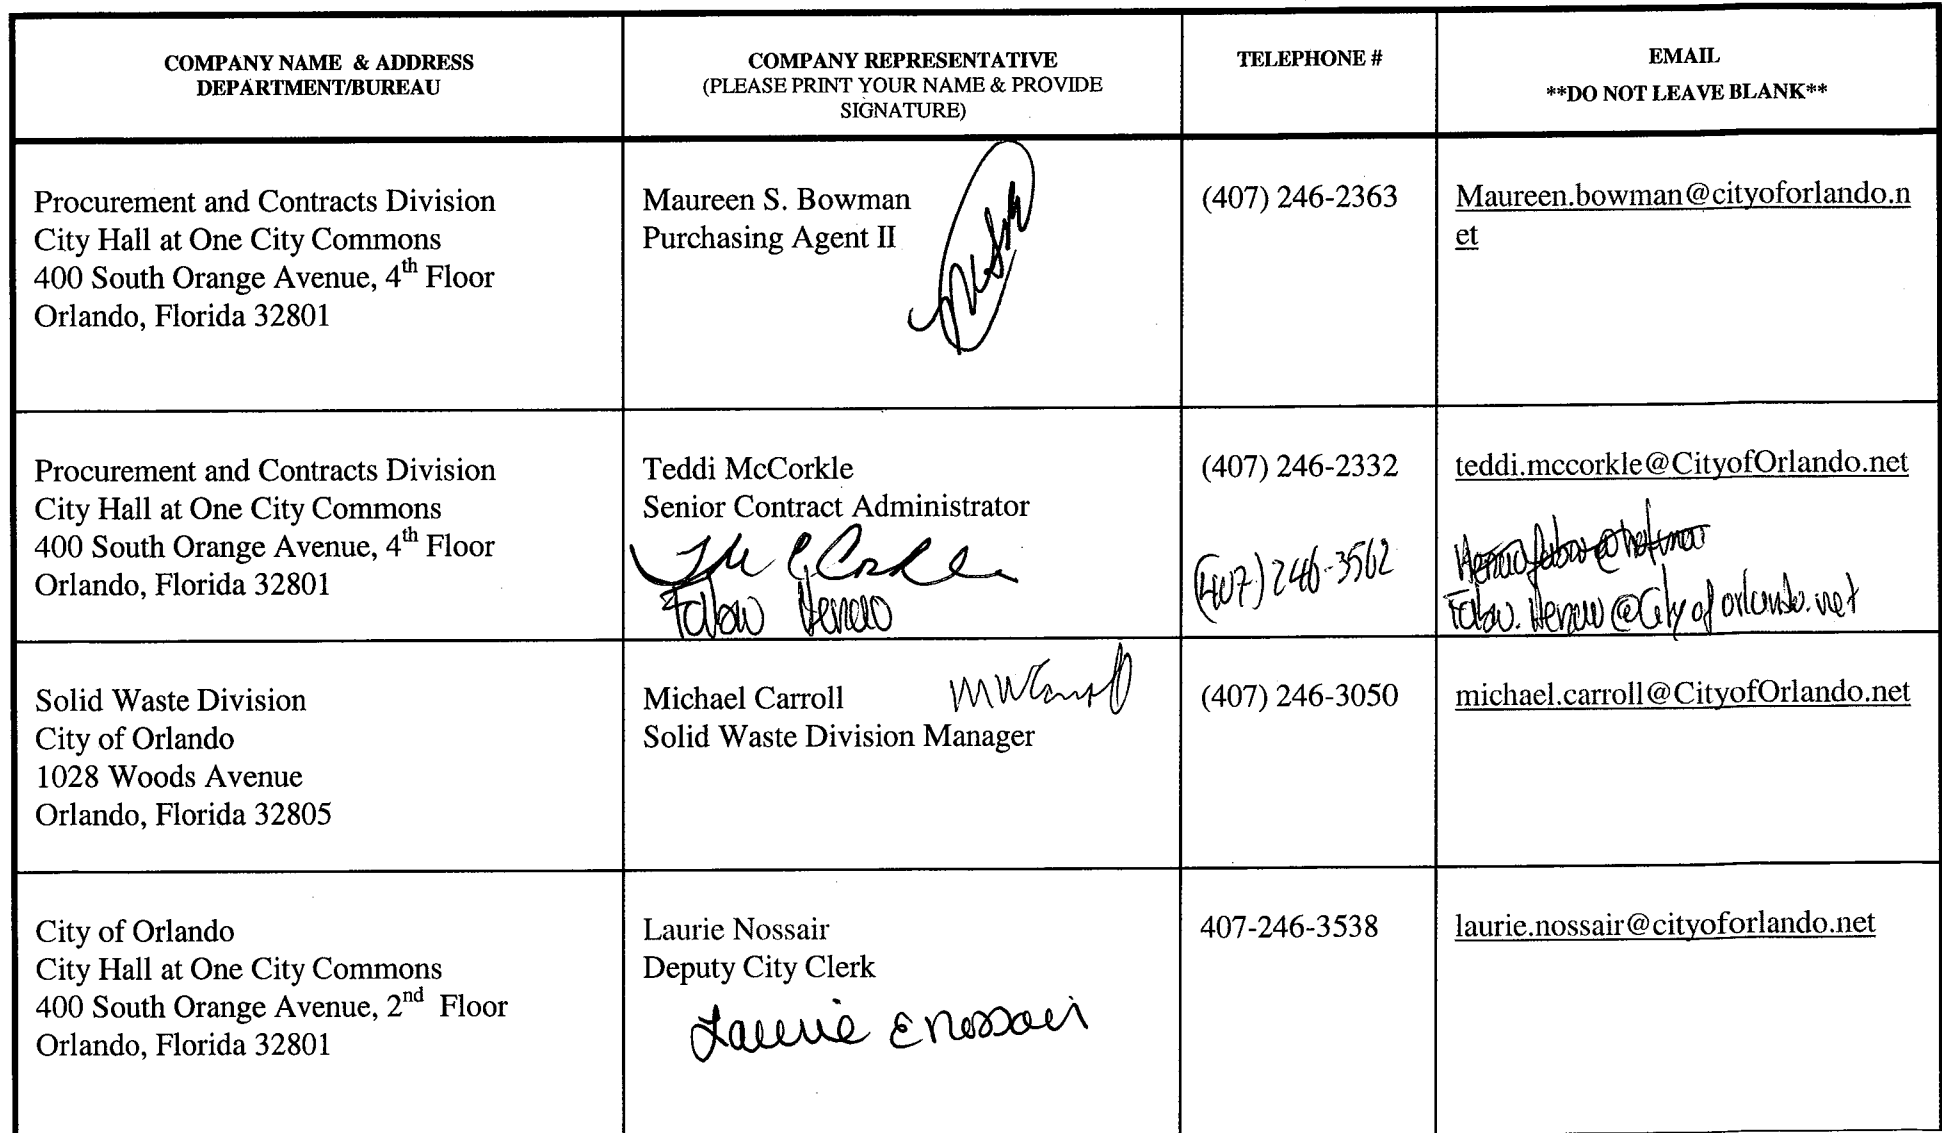 COMPANY NAME & ADDRESS
DEPARTMENT/BUREAU
COMPANY REPRESENTATIVE
(PLEASE PRINT YOUR NAME & PROVIDE
SIGNATURE)
TELEPHONE #
EMAIL
**DO NOT LEAVE BLANK**
Procurement and Contracts Division
City Hall at One City Commons
400 South Orange Avenue, 4th Floor
Orlando, Florida 32801
Maureen S. Bowman
Purchasing Agent II
(407) 246-2363
Maureen.bowman@cityoforlando.n
et
Procurement and Contracts Division
City Hall at One City Commons
400 South Orange Avenue, 4th Floor
Orlando, Florida 32801
Teddi McCorkle
Senior Contract Administrator
(407) 246-2332
(407) 246-3562
teddi.mccorkle@CityofOrlando.net
Solid Waste Division
City of Orlando
1028 Woods Avenue
Orlando, Florida 32805
Michael Carroll
Solid Waste Division Manager
(407) 246-3050
michael.carroll@CityofOrlando.net
City of Orlando
City Hall at One City Commons
400 South Orange Avenue, 2nd Floor
Orlando, Florida 32801
Laurie Nossair
Deputy City Clerk
Laurie E Nossair
407-246-3538
laurie.nossair@cityoforlando.net